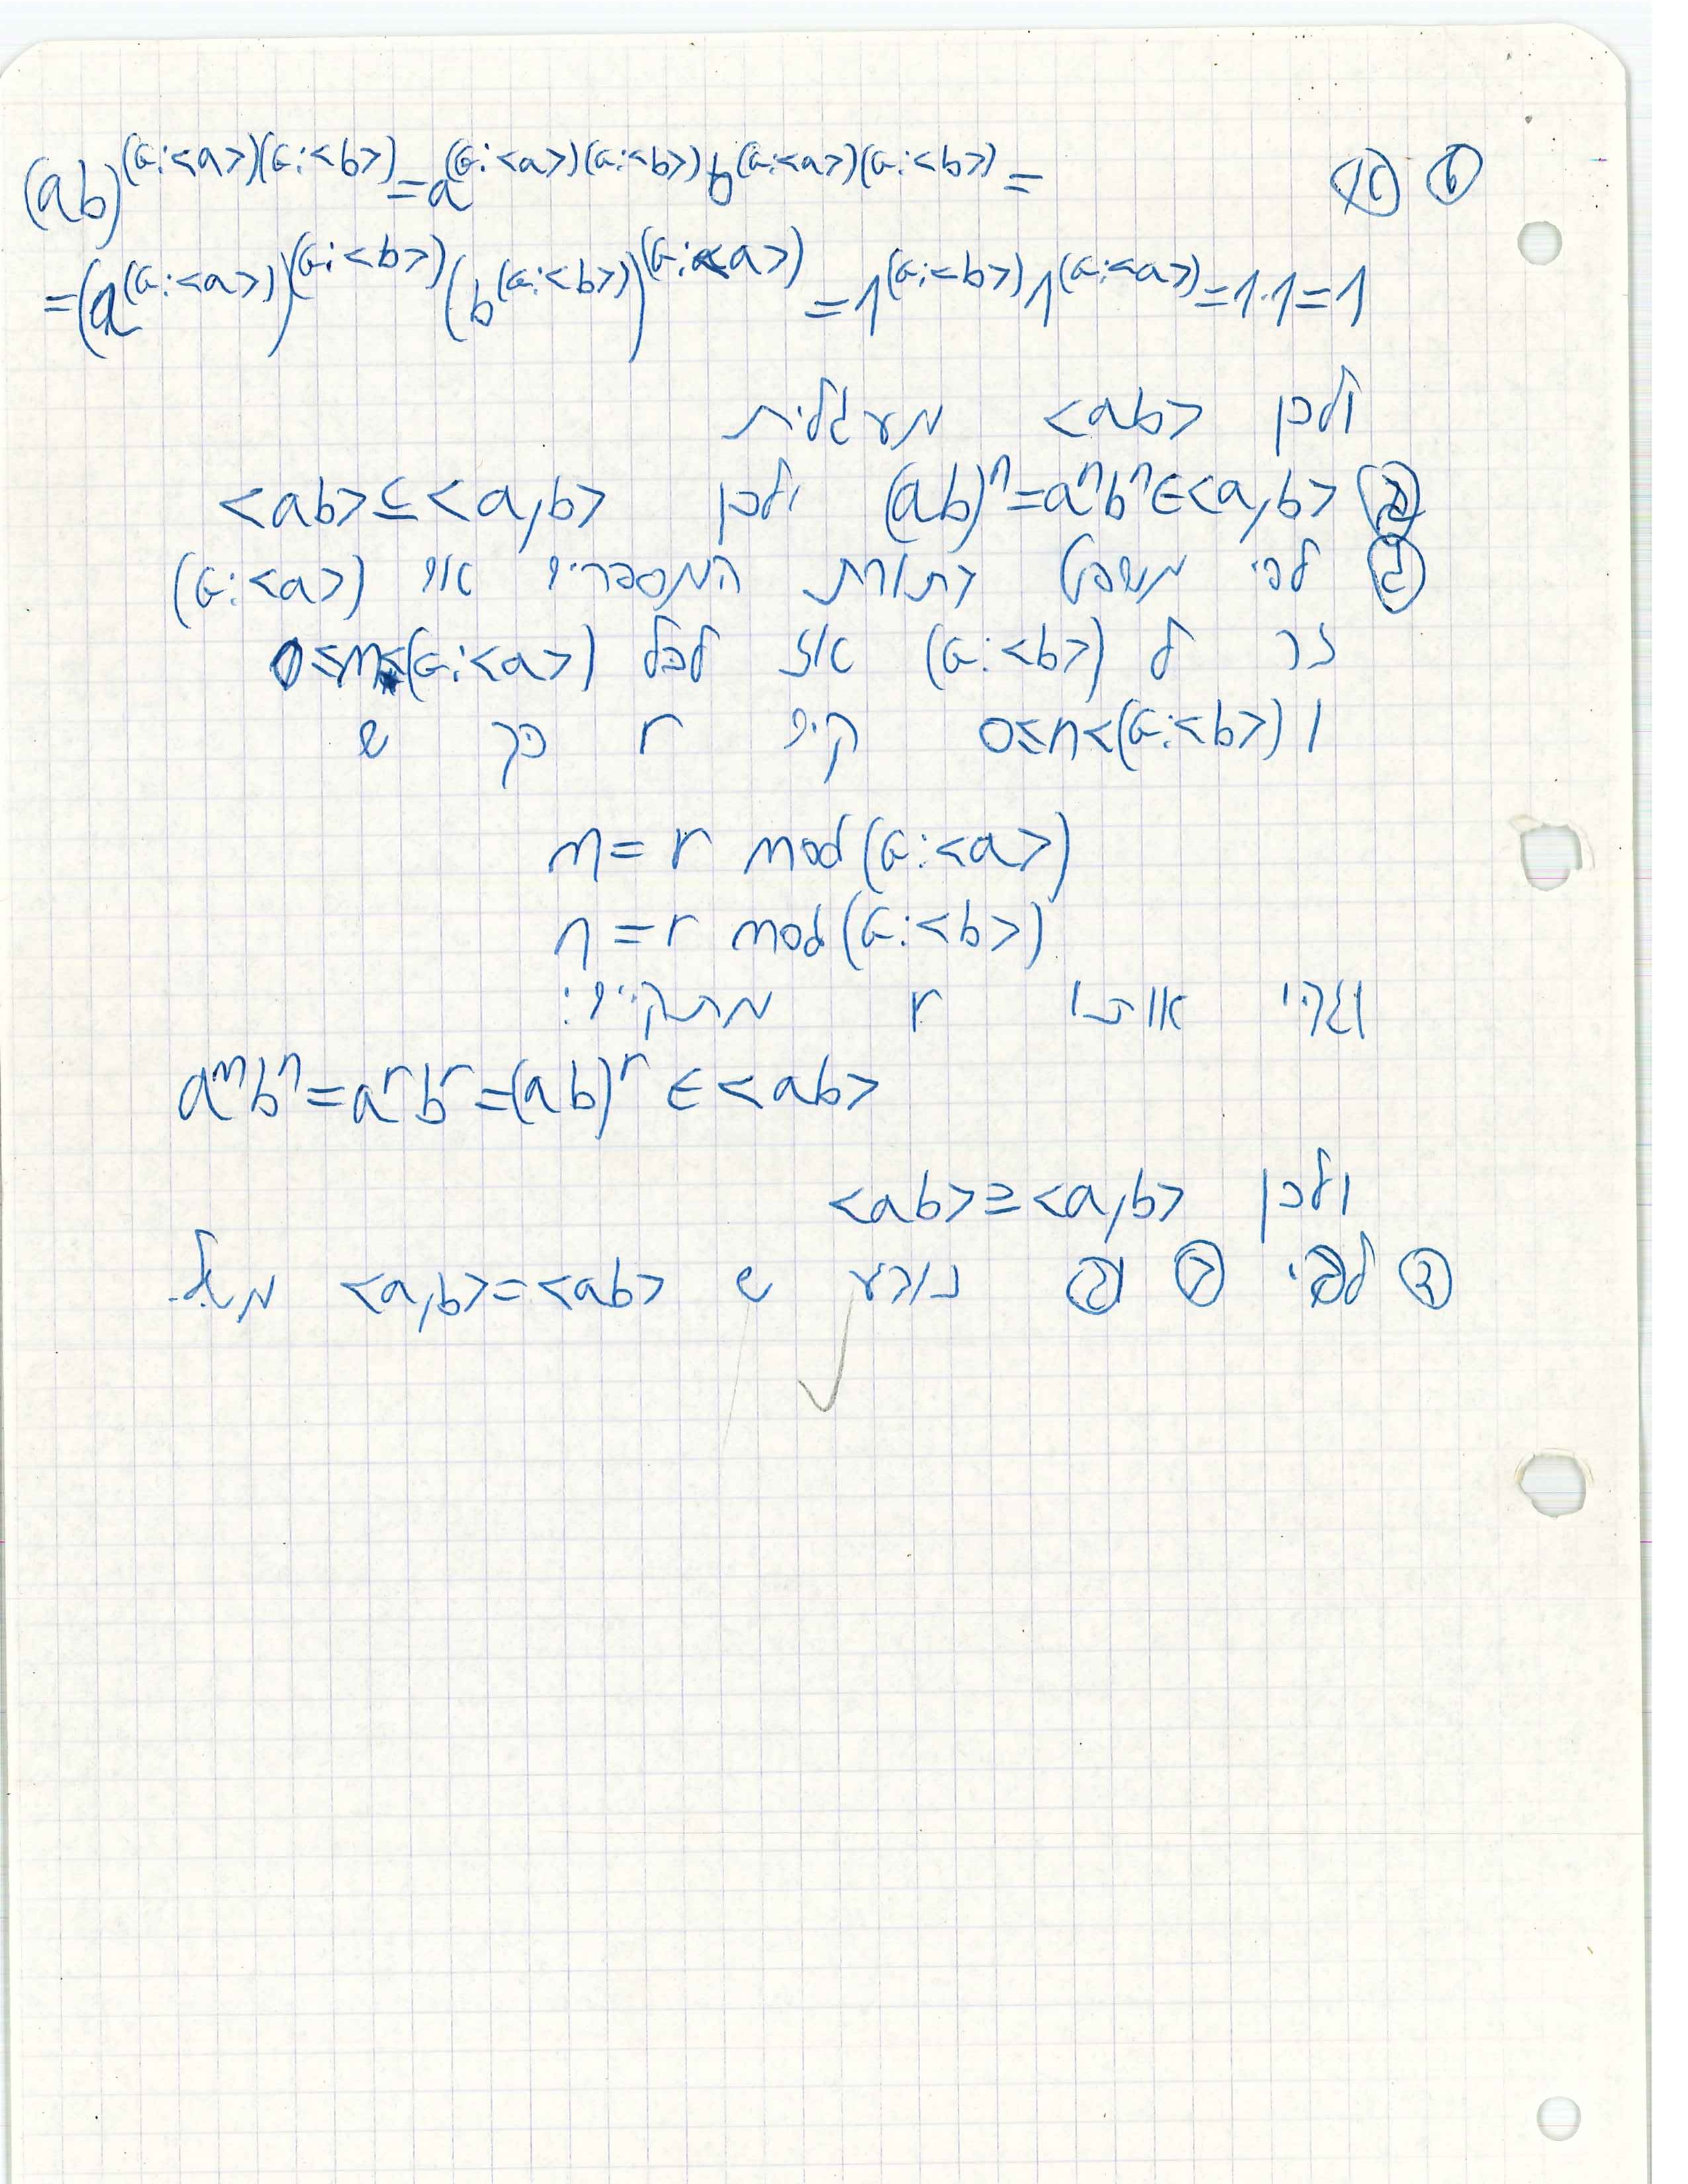 ⑥ (א) (ab)^{(G:<a>)(G:<b>)}=a^{(G:<a>)(G:<b>)}b^{(G:<a>)(G:<b>)}=
=(a^{(G:<a>)})^{(G:<b>)}(b^{(G:<b>)})^{(G:<a>)}=1^{(G:<b>)}1^{(G:<a>)}=1·1=1
ולכן <ab> מעגלית
(ב) (ab)^n=a^n b^n∈<a,b> ולכן <ab>⊆<a,b>
(ג) לפי משפט בתורת המספרים אם (G:<a>)
זר ל (G:<b>) אז לכל 0≤m<(G:<a>)
ו 0≤n<(G:<b>) קיים r כך ש
m=r mod(G:<a>)
n=r mod(G:<b>)
ולפי אותו r מתקיים:
a^m b^n=a^r b^r=(ab)^r ∈<ab>
ולכן <ab>⊇<a,b>
(ד) לפי (ב) ו(ג) נובע ש <a,b>=<ab> מש"ל.